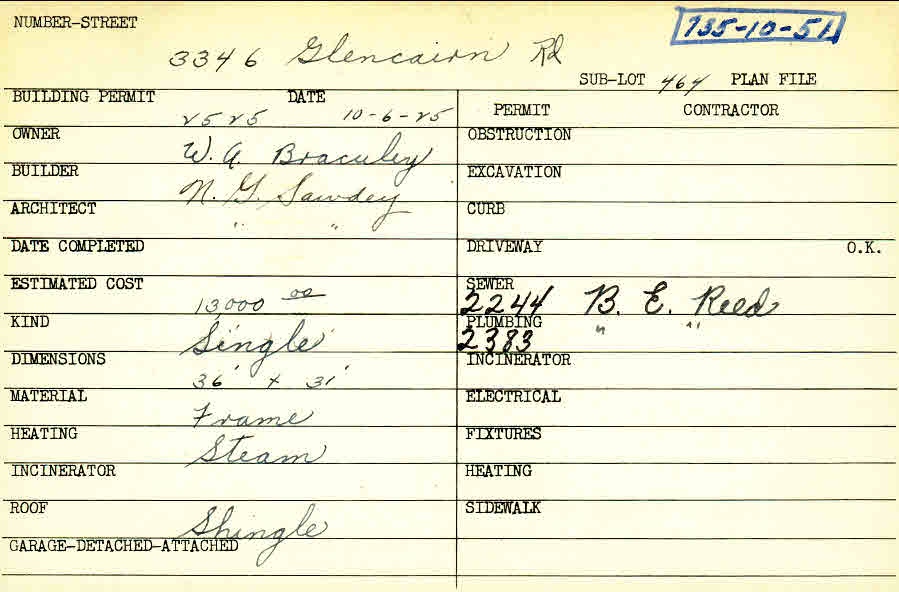 NUMBER-STREET
735-10-51
3346 Glencairn Rd
SUB-LOT 464 PLAN FILE
BUILDING PERMIT DATE
2525 10-6-25
PERMIT CONTRACTOR
OWNER W. A.
OBSTRUCTION
BUILDER N. G. Sawdey
EXCAVATION
ARCHITECT " "
CURB
DATE COMPLETED
DRIVEWAY O.K.
ESTIMATED COST 13,000 00
SEWER 2244 B. E. Reed
KIND Single
PLUMBING 2383 " "
DIMENSIONS 36' x 31'
INCINERATOR
MATERIAL Frame
ELECTRICAL
HEATING Steam
FIXTURES
INCINERATOR
HEATING
ROOF Shingle
SIDEWALK
GARAGE-DETACHED-ATTACHED